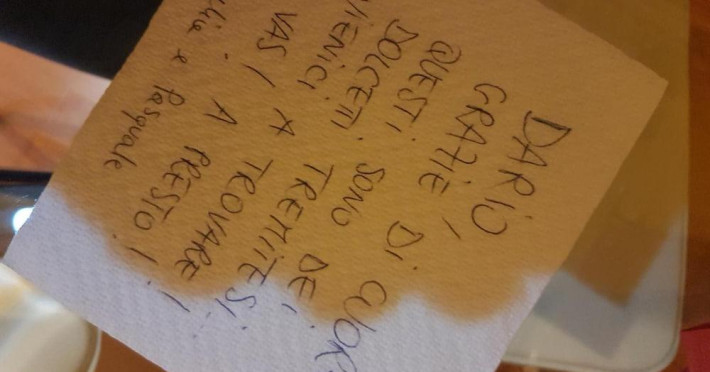 DARIO
GRAZIE, DI CUOR
QUESTI SONO DEI
DOLCETTI TREMITESI...
VIENICI A TROVARE!
A PRESTO!!
e Pasquale